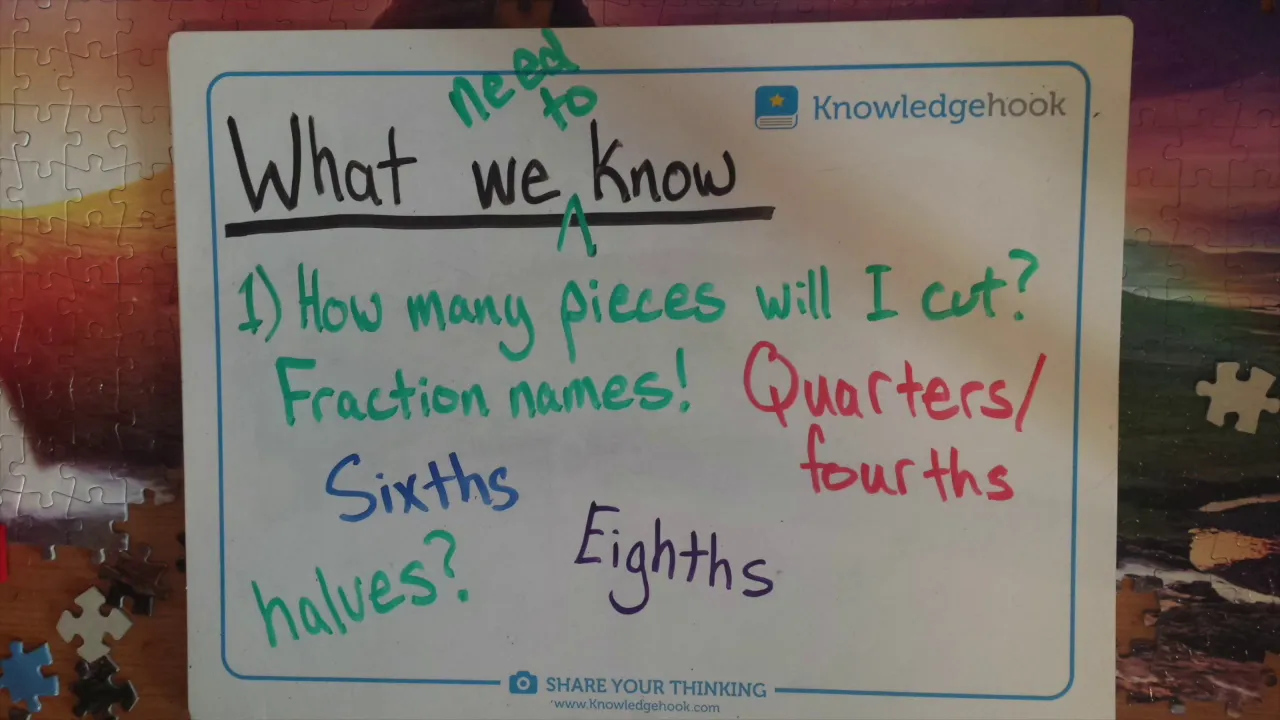 Knowledgehook
What we need to know
1) How many pieces will I cut?
Fraction names!
Quarters/
fourths
Sixths
Eighths
halves?
SHARE YOUR THINKING
www.Knowledgehook.com